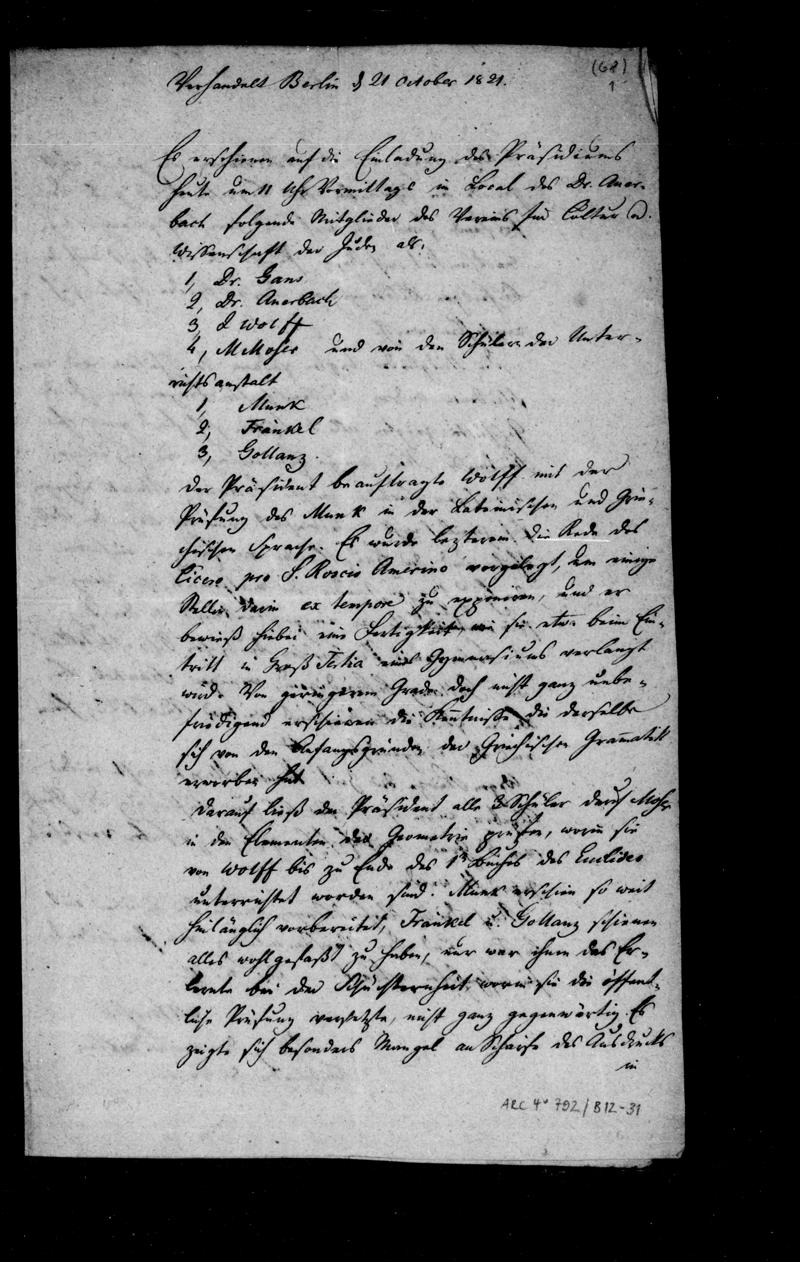 (68)
1
Verhandelt Berlin d 21 October 1821.
Es erschienen auf die Einladung des Präsidiums
heute um 11 Uhr Vormittags in Local des Dr. Auer-
bach folgende Mitglieder des Vereins für Cultur u.
Wissenschaft der Juden als.
1, Dr. Gans
2, Dr. Auerbach
3, Wolff
4, M Moser und von den Schülern der Unter-
richtsanstalt
1, Munk
2, Fränkel
3, Gollanz.
Der Präsident beauftragte Wolff mit der
Prüfung des Munk in der Lateinischen und Grie-
chischen Sprache. Es wurde lezterem die Rede des
Cicero pro S. Roscio Amerino vorgelegt, um einige
Stellen darin ex tempore zu exponiren, und er
bewieß hiebei eine Fertigkeit, wie sie etwa beim Ein-
tritt in Groß Tertia eines Gymnasiums verlangt
wird. Von geringerem Grade doch nicht ganz unbe-
friedigend erschienen die Kenntnisse die derselbe
sich von den Anfangsgründen der Griechischen Grammatik
erworben hat
Darauf ließ der Präsident alle 3 Schüler durch Moser
in den Elementen der Geometrie prüfen, worin sie
von Wolff bis zu Ende des 1t Buches des Euclides
unterrichtet worden sind. Munk erschien so weit
hinlänglich vorbereitet, Fränkel u. Gollanz schienen
alles wohl gefaßt zu haben, nur war ihnen das Er-
lernte bei der Schüchternheit, worin sie die öffent-
liche Prüfung versetzte, nicht ganz gegenwärtig. Es
zeigte sich besonders Mangel an Schärfe des Ausdrucks
in
ARC 4° 792 / B12-31